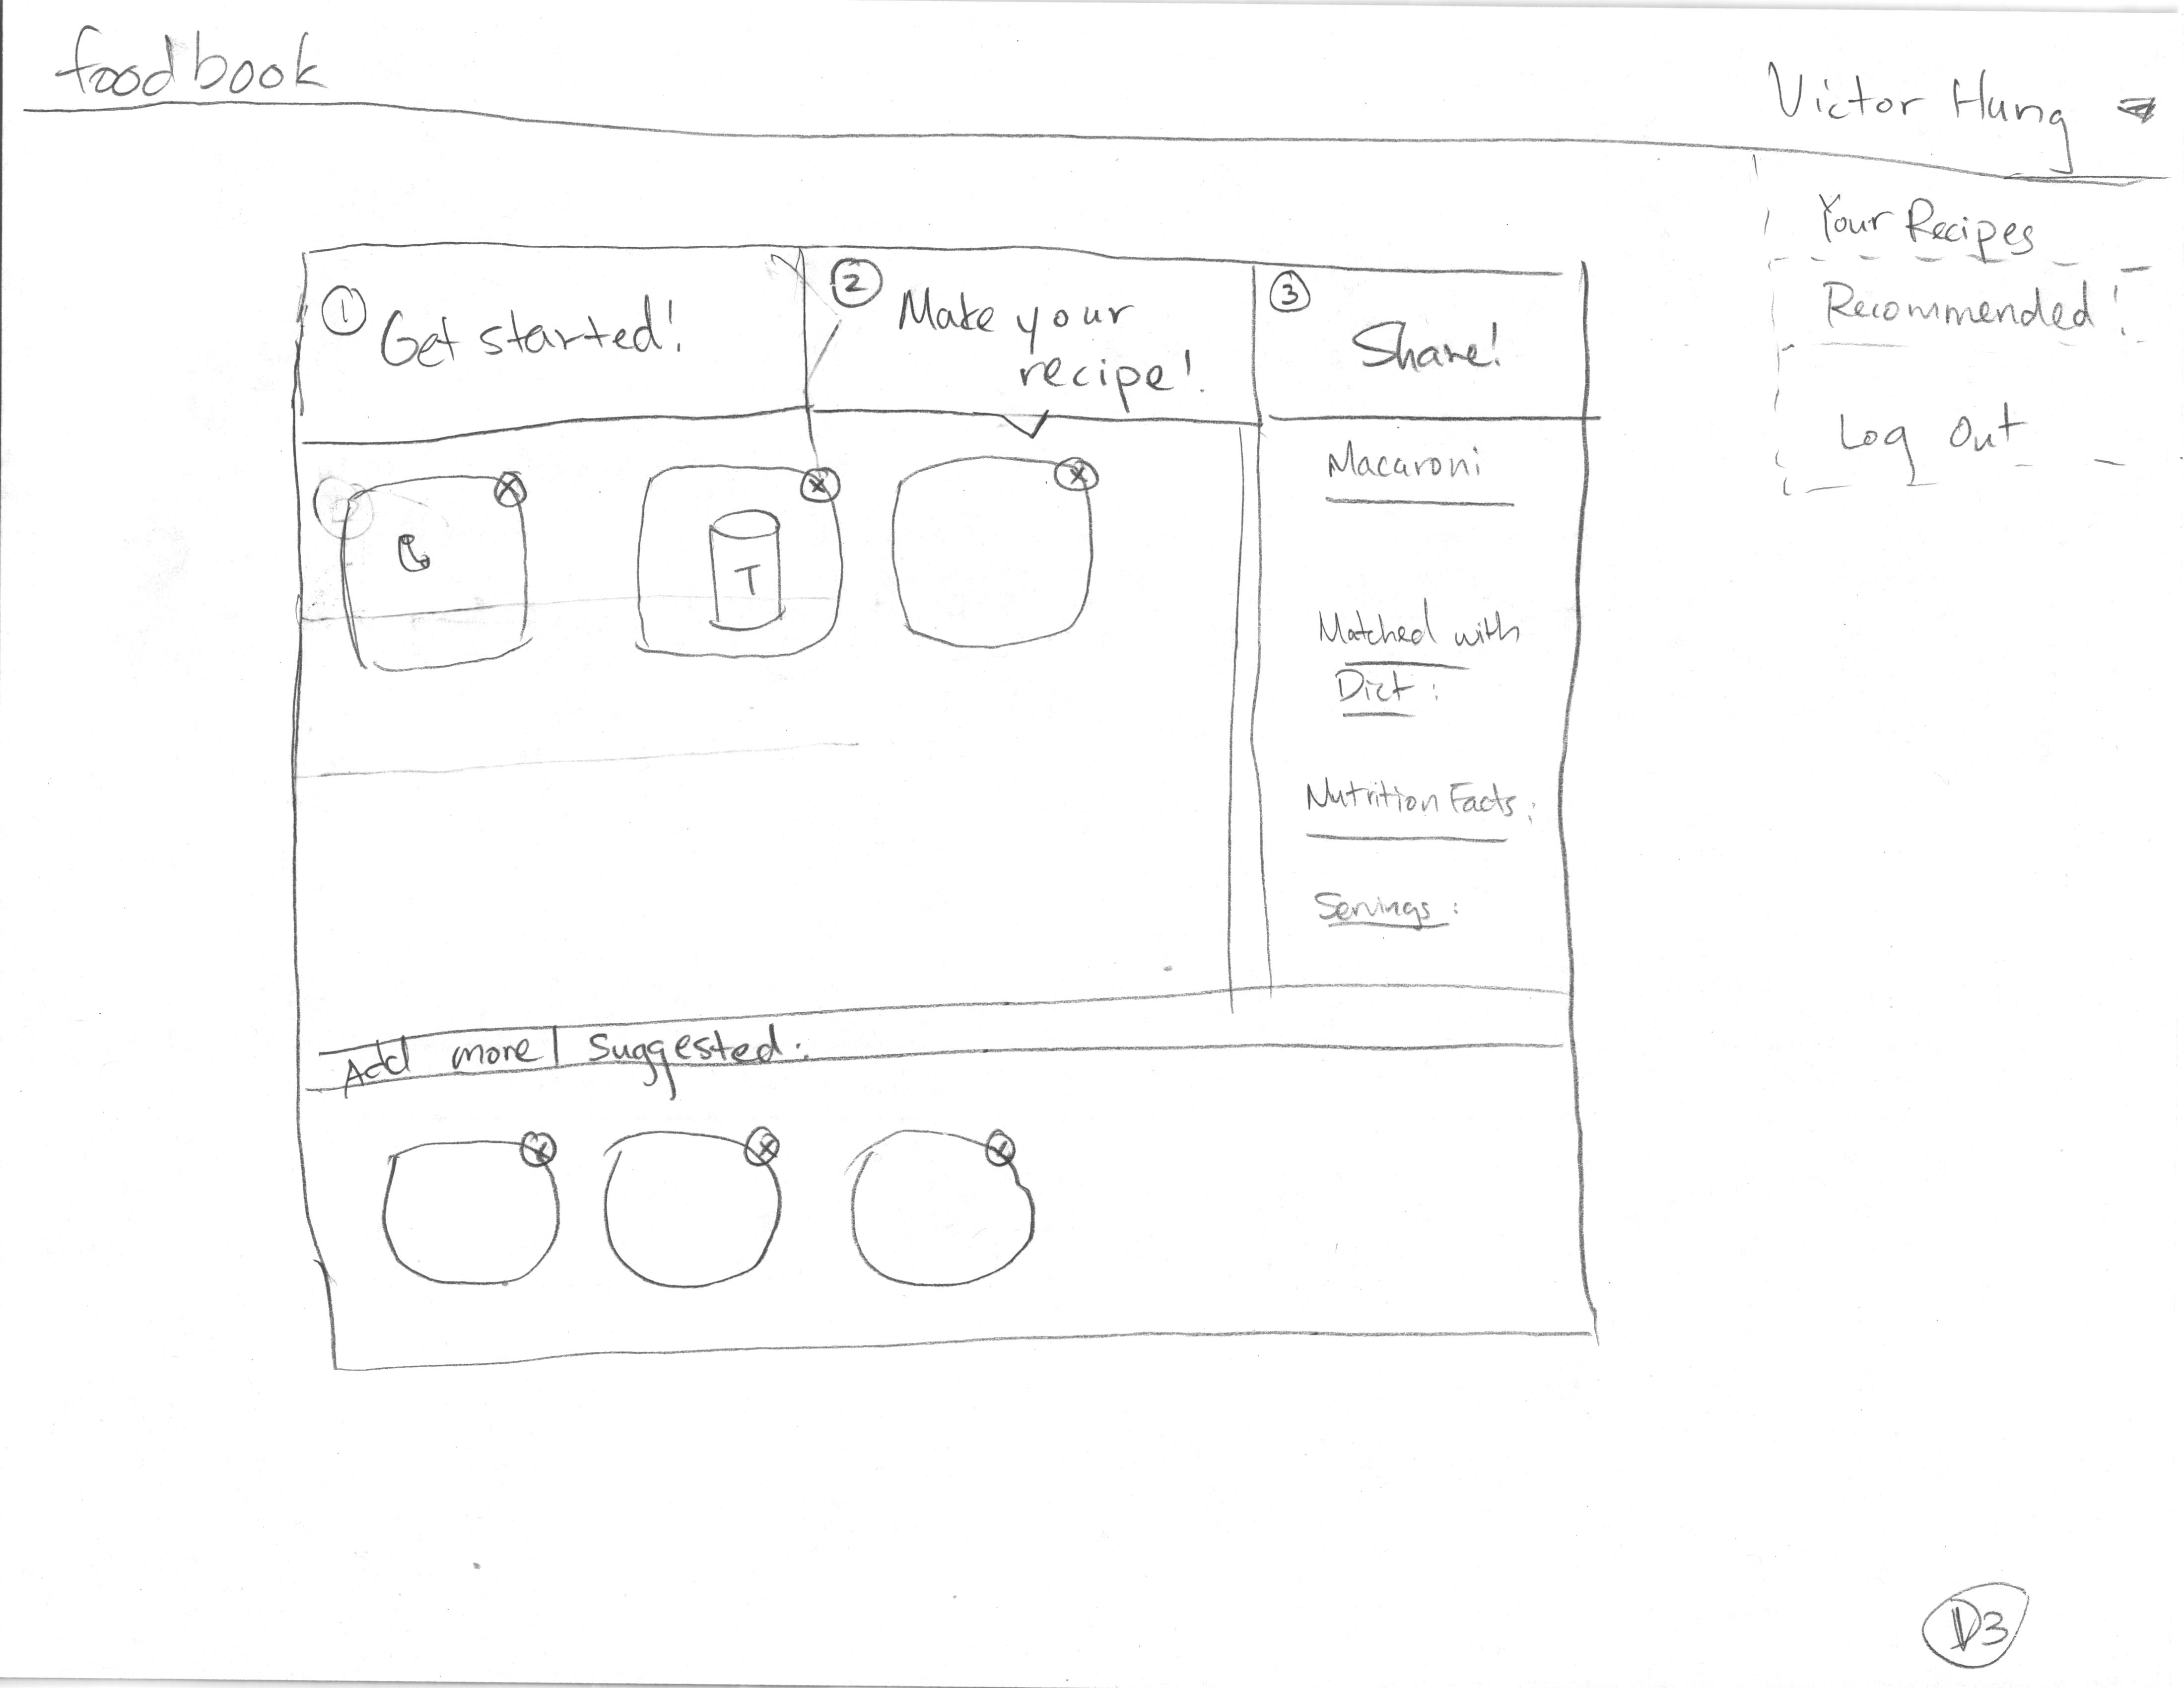 foodbook
Victor Hung
Your Recipes
Recommended!
Log Out
1 Get started!
2 Make your
recipe!
3 Share!
T
Macaroni
Matched with
Diet:
Nutrition Facts:
Servings:
Add more | Suggested:
D3